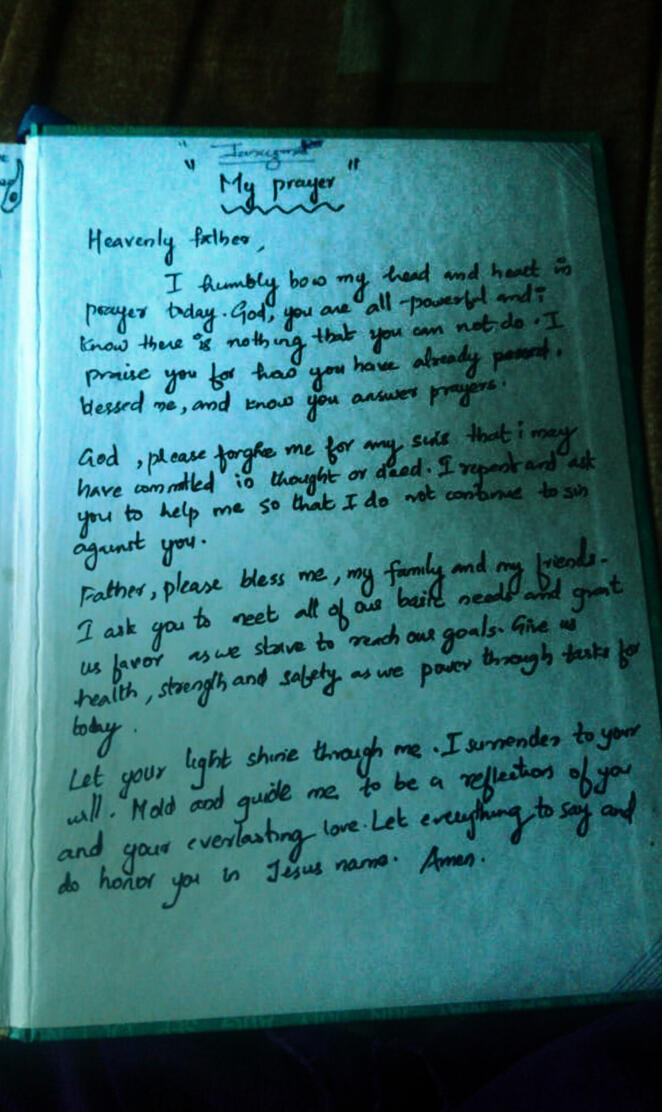 " "
My prayer
Heavenly father,
I humbly bow my head and heart in
prayer today. God, you are all-powerful and i
know there is nothing that you can not do. I
praise you for how you have already
blessed me, and know you answer prayers.
God, please forgive me for any sins that i may
have committed in thought or deed. I repent and ask
you to help me so that I do not continue to sin
against you.
Father, please bless me, my family and my friends.
I ask you to meet all of our basic needs and grant
us favor as we strive to reach our goals. Give us
health, strength and safety as we power through tasks for
today.
Let your light shine through me. I surrender to your
will. Mold and guide me to be a reflection of you
and your everlasting love. Let everything to say and
do honor you in Jesus name. Amen.